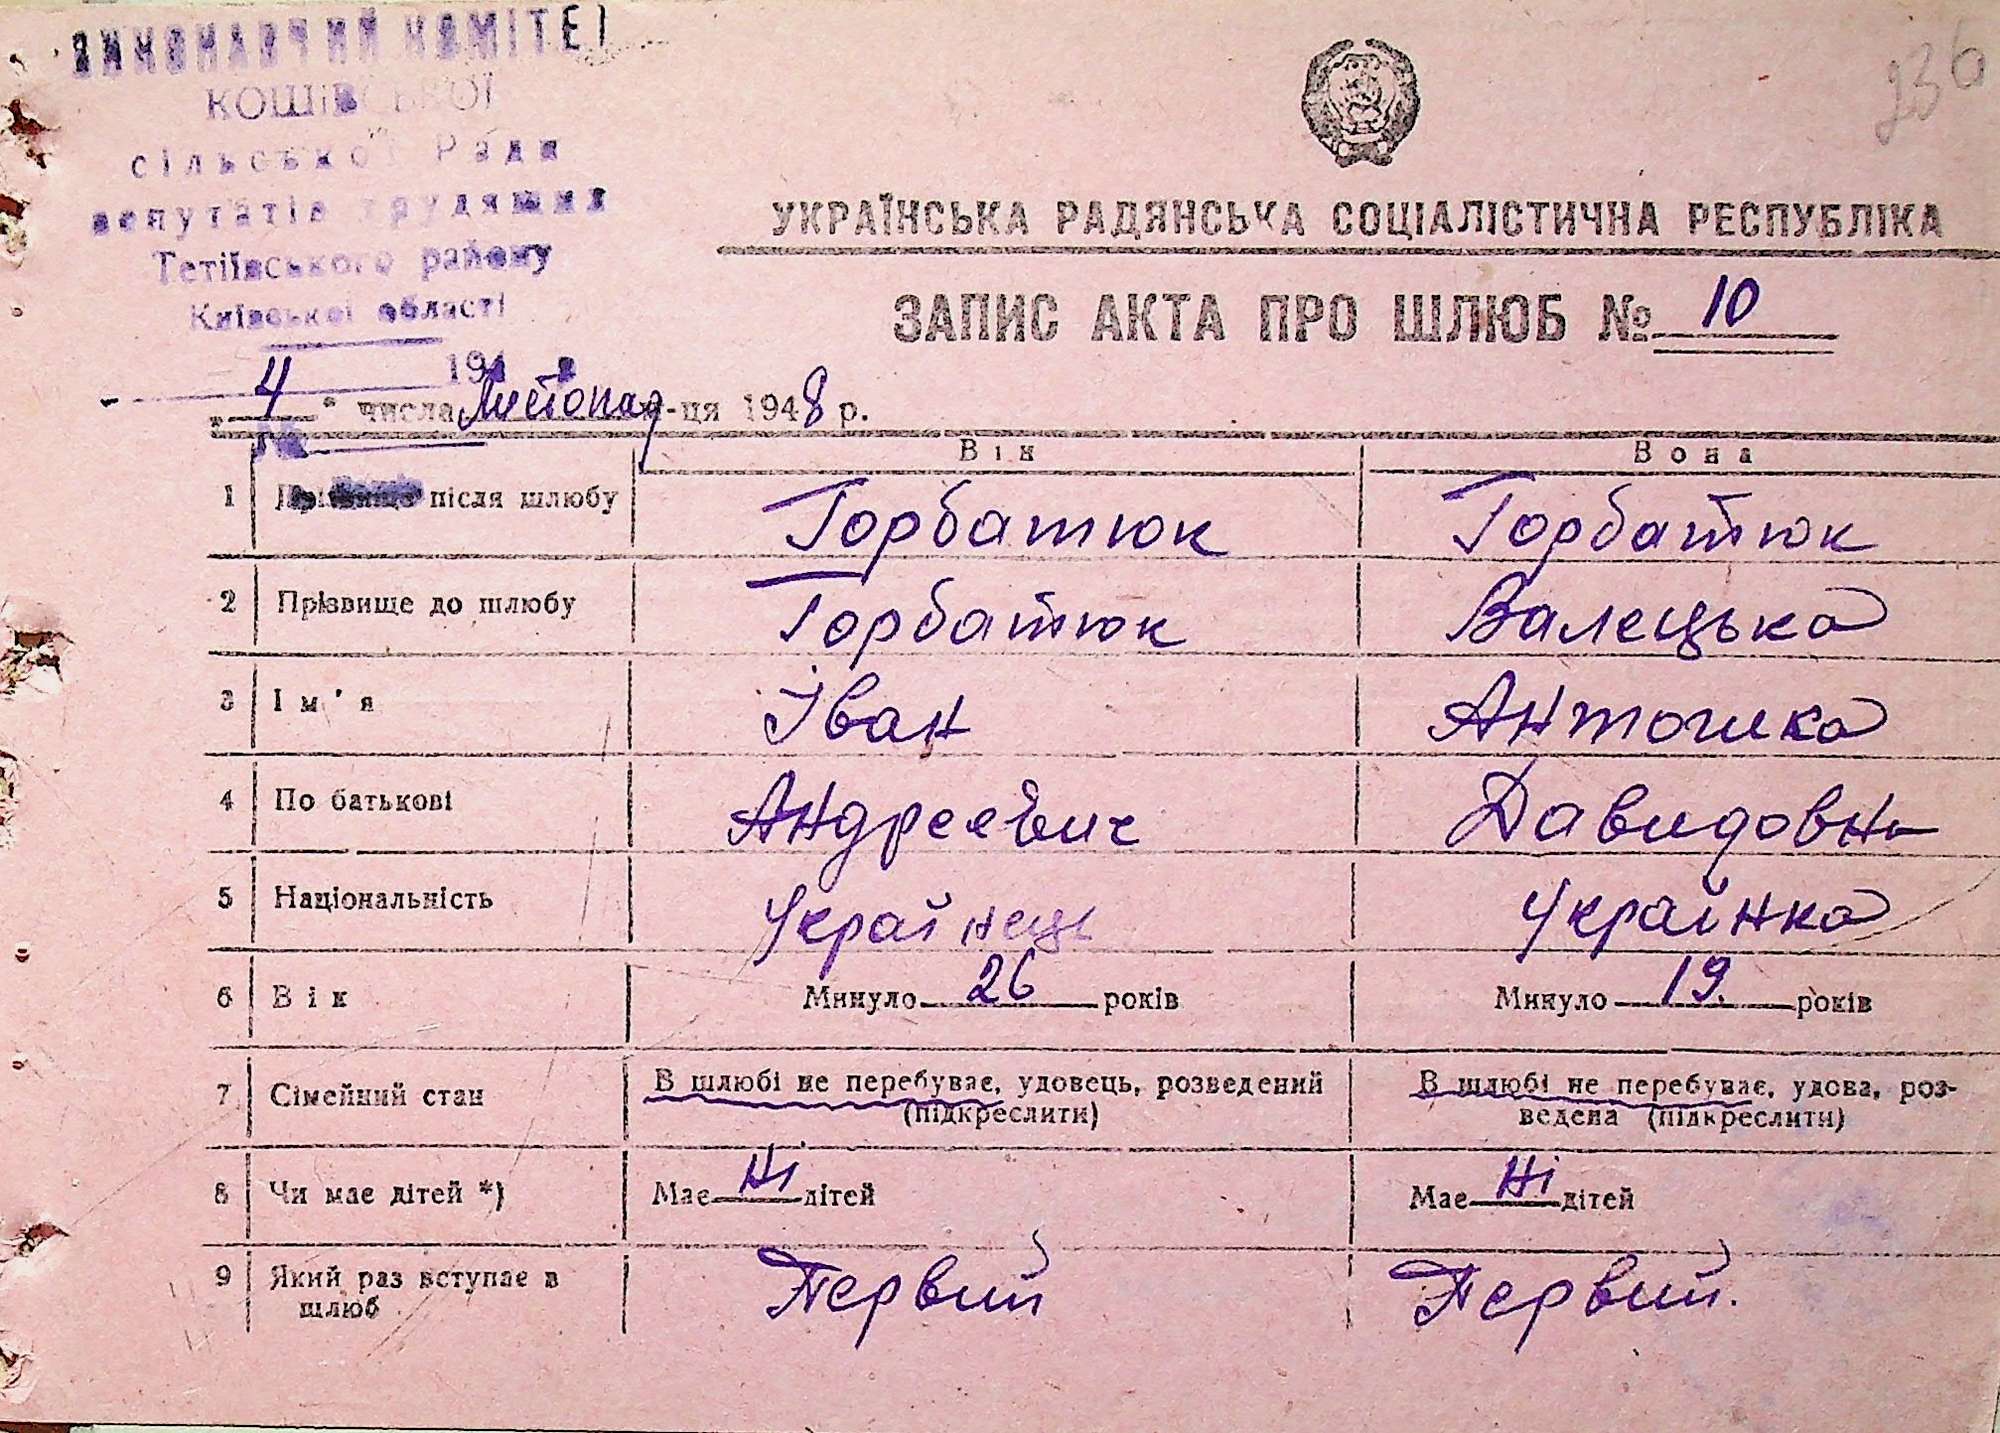 ВИКОНАВЧИЙ КОМІТЕТ
КОШІВСЬКОЇ
сільської Ради
депутатів трудящих
Тетіївського району
Київської області
194
236
УКРАЇНСЬКА РАДЯНСЬКА СОЦІАЛІСТИЧНА РЕСПУБЛІКА
ЗАПИС АКТА ПРО ШЛЮБ № 10
„4" числа Листопад м-ця 1948 р.
Він Вона
1 Прізвище після шлюбу Горбатюк Горбатюк
2 Прізвище до шлюбу Горбатюк Валецька
3 Ім'я Іван Антоніка
4 По батькові Андреєвич Давидовна
5 Національність Українець Українка
6 Вік Минуло 26 років Минуло 19. років
7 Сімейний стан В шлюбі не перебуває, удовець, розведений (підкреслити) В шлюбі не перебуває, удова, роз-
ведена (підкреслити)
8 Чи має дітей *) Має Ні дітей Має Ні дітей
9 Який раз вступає в шлюб Первий Первий.